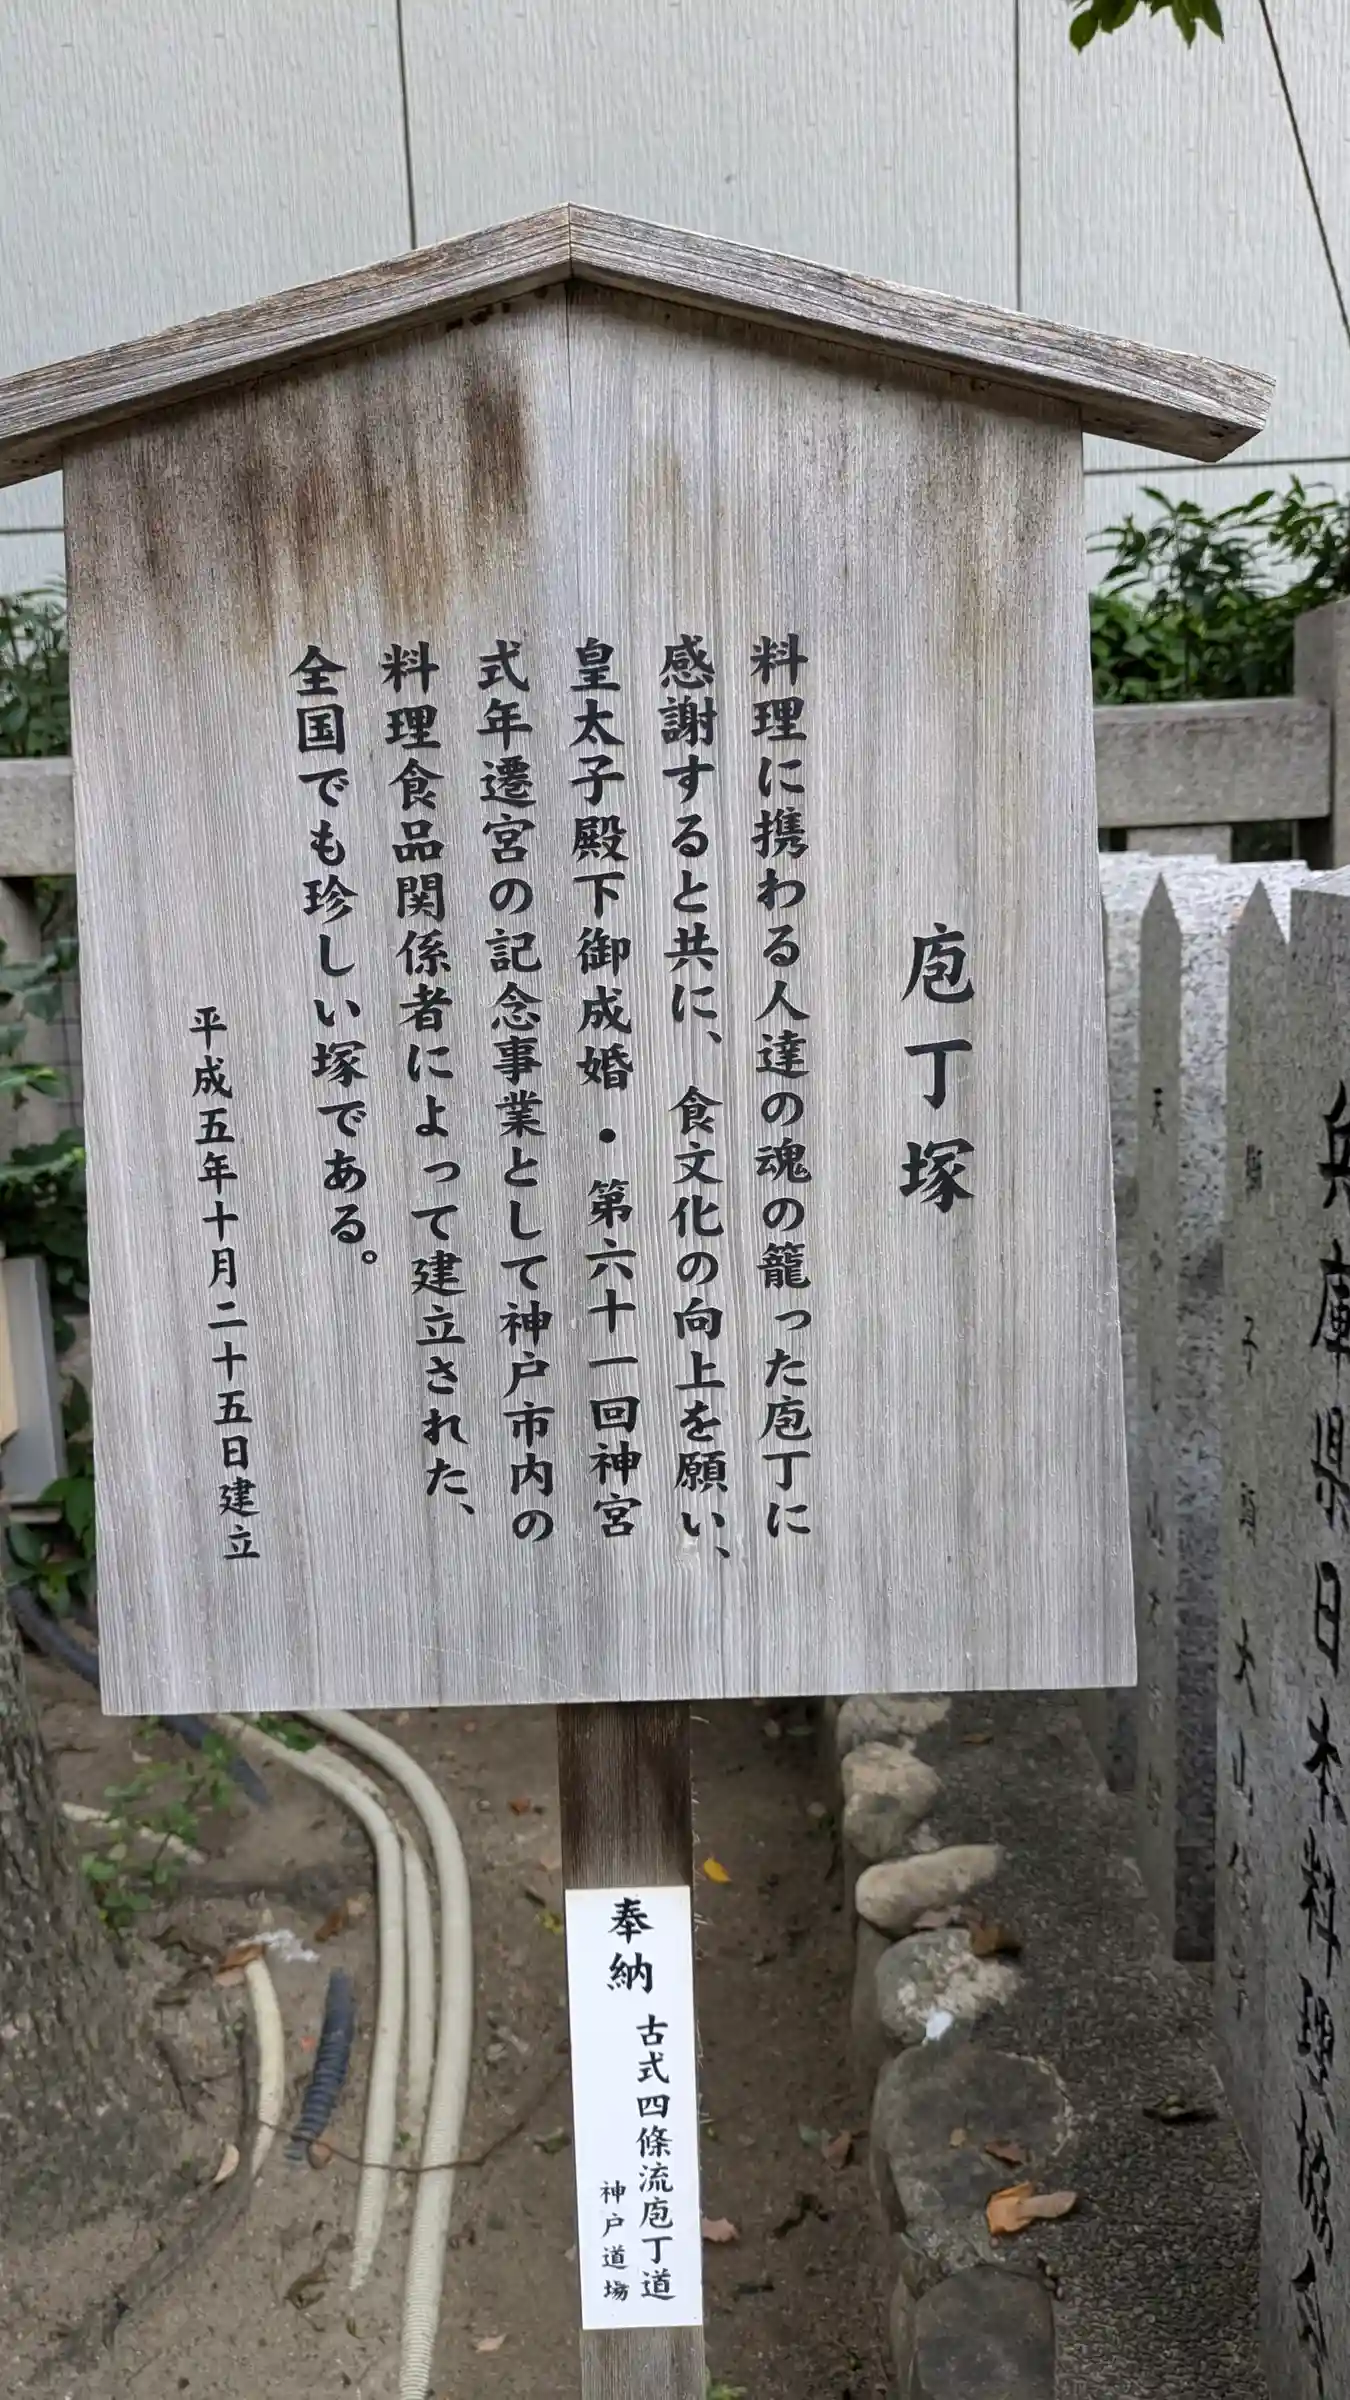 庖丁塚
料理に携わる人達の魂の籠った庖丁に
感謝すると共に、食文化の向上を願い、
皇太子殿下御成婚・第六十一回神宮
式年遷宮の記念事業として神戸市内の
料理食品関係者によって建立された、
全国でも珍しい塚である。
平成五年十月二十五日建立
奉納
古式四條流庖丁道
神戸道場
兵庫県日本料理協会